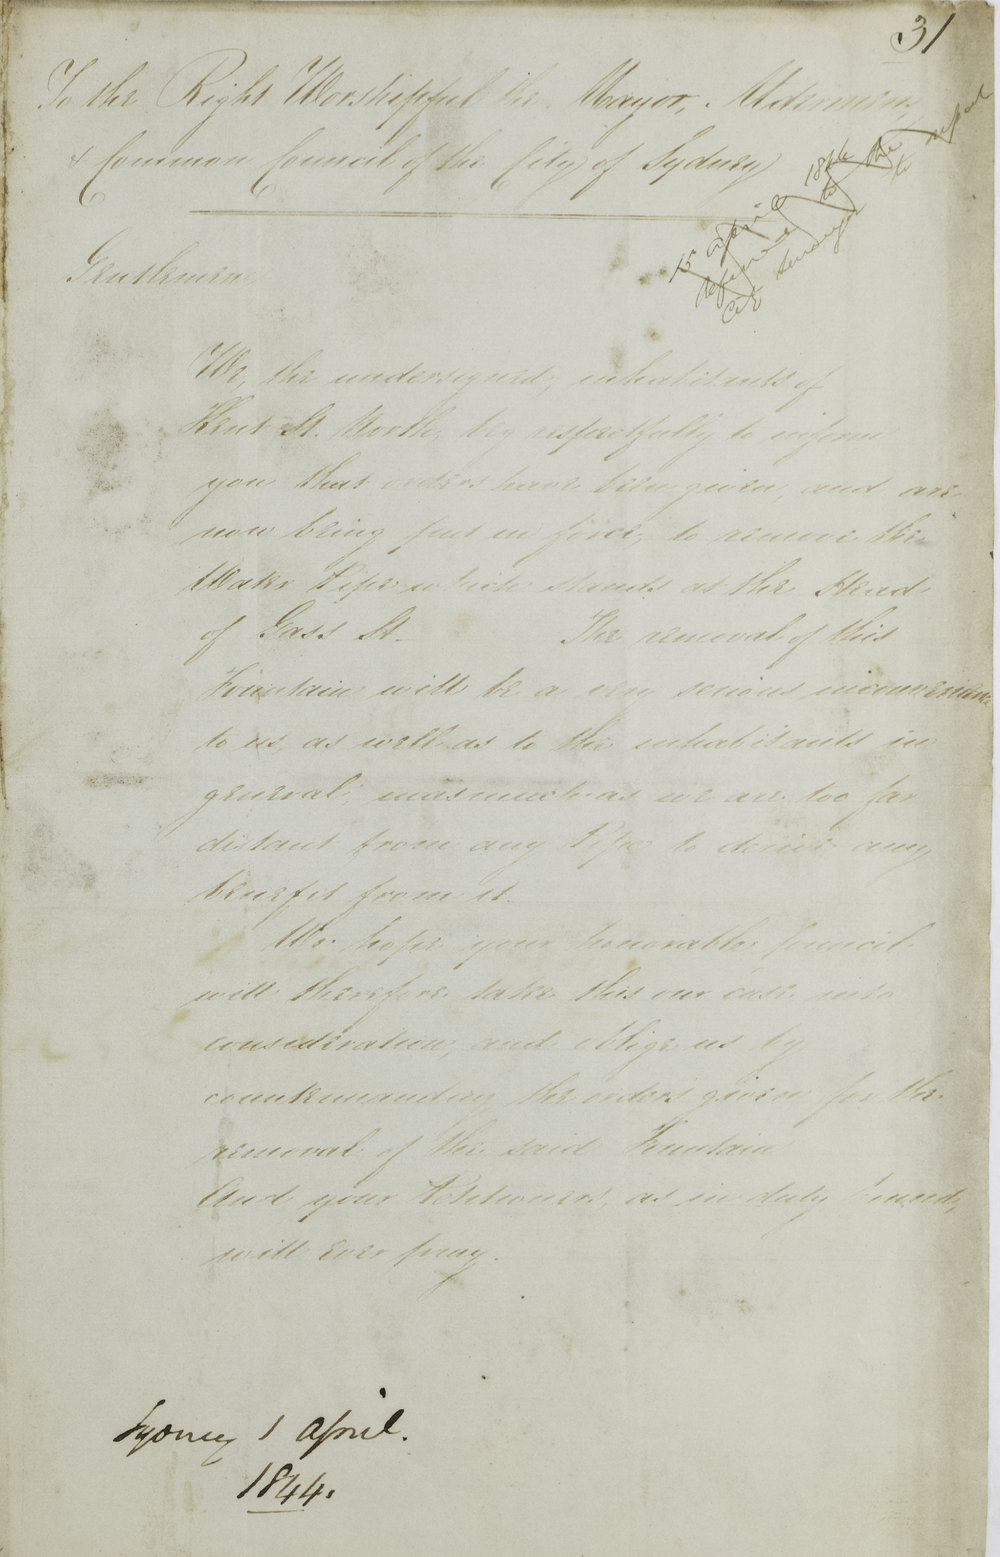 31
To the Right Worshipful the Mayor, Aldermen,
& Common Council of the City of Sydney
15 April 1844
Referred to the
City Surveyor to report
Gentlemen,
We, the undersigned, inhabitants of
Kent St. North, beg respectfully to inform
you that orders have been given, and are
now being put in force, to remove the
Water Pipe which stands at the Head
of Gass St. The removal of this
Fountain will be a very serious inconvenience
to us, as well as to the inhabitants in
general, inasmuch as we are too far
distant from any Pipe to derive any
benefit from it.
We hope your honorable Council
will therefore take this our case into
consideration, and oblige us by
countermanding the orders given for the
removal of the said Fountain
And your Petitioners, as in duty bound,
will ever pray.
Sydney 1 April.
1844.